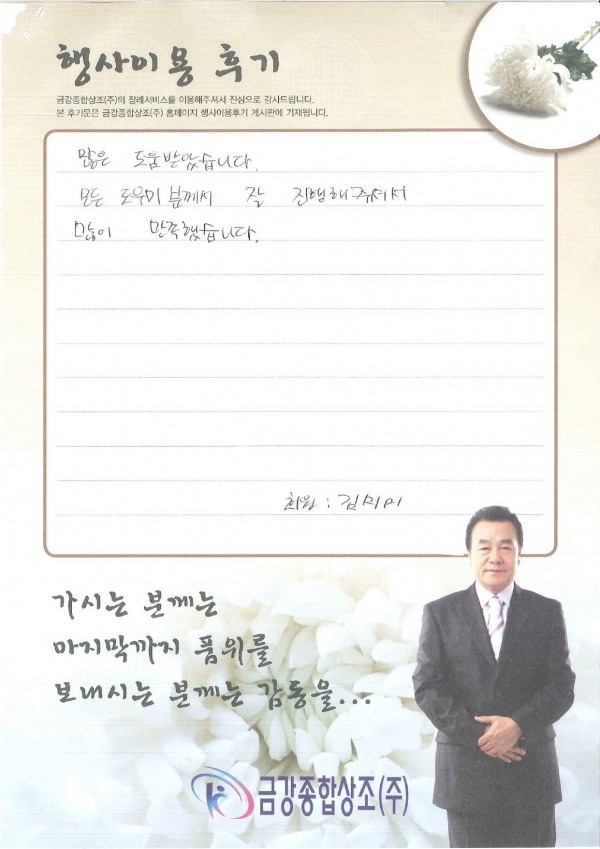 행사이용 후기
금강종합상조(주)의 장례서비스를 이용해주셔서 진심으로 감사드립니다.
본 후기문은 금강종합상조(주) 홈페이지 행사이용후기 게시판에 기재됩니다.
많은 도움받았습니다.
모든 도우미분께서 잘 진행해주셔서
많이 만족했습니다.
회원 :
가시는 분께는
마지막까지 품위를
보내시는 분께는 감동을...
금강종합상조(주)